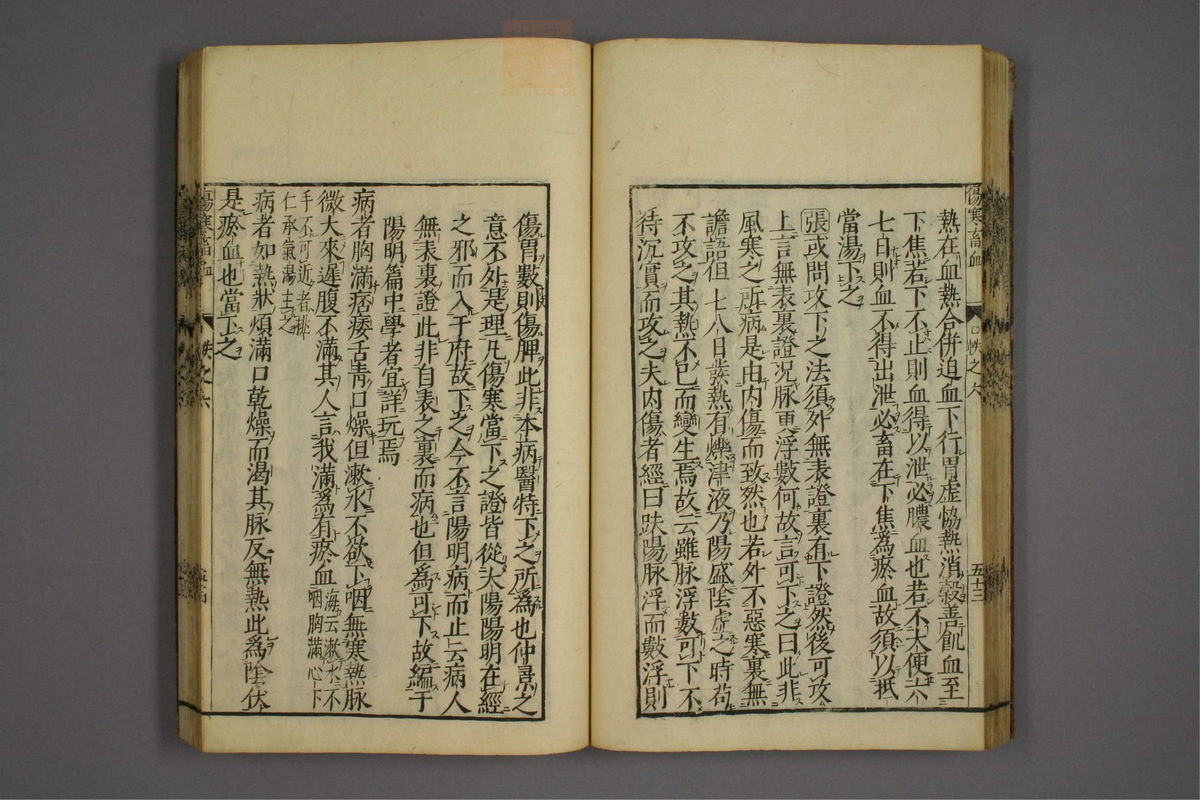 熱在血熱合併迫血下行胃虚恊熱消穀善飢血至
下焦若下不止則血得以泄必膿血也若不大便六
七日則血不得出泄必畜在下焦為瘀血故須以抵
當湯下之
張或問攻下之法須外無表證裏有下證然後可攻
上言無表裏證况脉更浮數何故言可下之曰此非
風寒之所病是由内傷而致然也若外不惡寒裏無
譫語但七八日發熱有爍津液乃陽盛陰虚之時苟
不攻之其熱不已而變生焉故云雖脉浮數可下不
待沉實而攻之夫内傷者經曰趺陽脉浮而數浮則
傷胃數則傷脾此非本病醫特下之所為也仲景之
意不外是理凡傷寒當下之證皆從太陽陽明在經
之邪而入于府故下之今不言陽明病而止云病人
無表裏證此非自表之裏而病也但為可下故編于
陽明篇中學者宜詳玩焉
病者胸滿痞痿舌青口燥但漱水不欲下咽無寒熱脉
微大來遲腹不滿其人言我滿為有瘀血海云漱水不咽胸滿心下
手不可近者桃仁承氣湯主之
病者如熱狀煩滿口乾燥而渴其脉反無熱此為陰伏
是瘀血也當下之
傷寒畜血
帙之六
五十三
傷寒畜血
帙之六